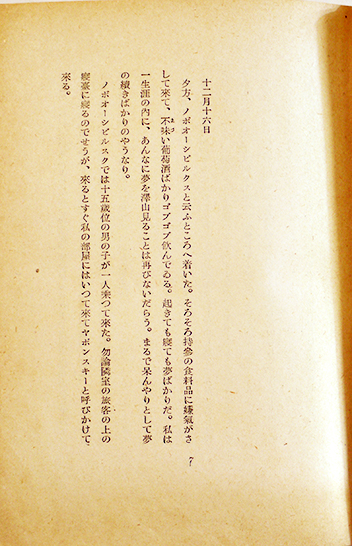 十二月十六日
夕方、ノボオーシビルクスと云ふところへ着いた。そろそろ持參の食料品に嫌氣がさ
して來て、不味い葡萄酒ばかりゴブゴブ飮んでゐる。起きても寢ても夢ばかりだ。私は
一生涯の內に、あんなに夢を澤山見ることは再びないだらう。まるで呆んやりとして夢
の續きばかりのやうなり。
ノボオーシビルスクでは十五歲位の男の子が一人乘つて來た。勿論隣室の旅客の上の
寢臺に寢るのでせうが、來るとすぐ私の部屋にはいつて來てヤポンスキーと呼びかけて
來る。
7